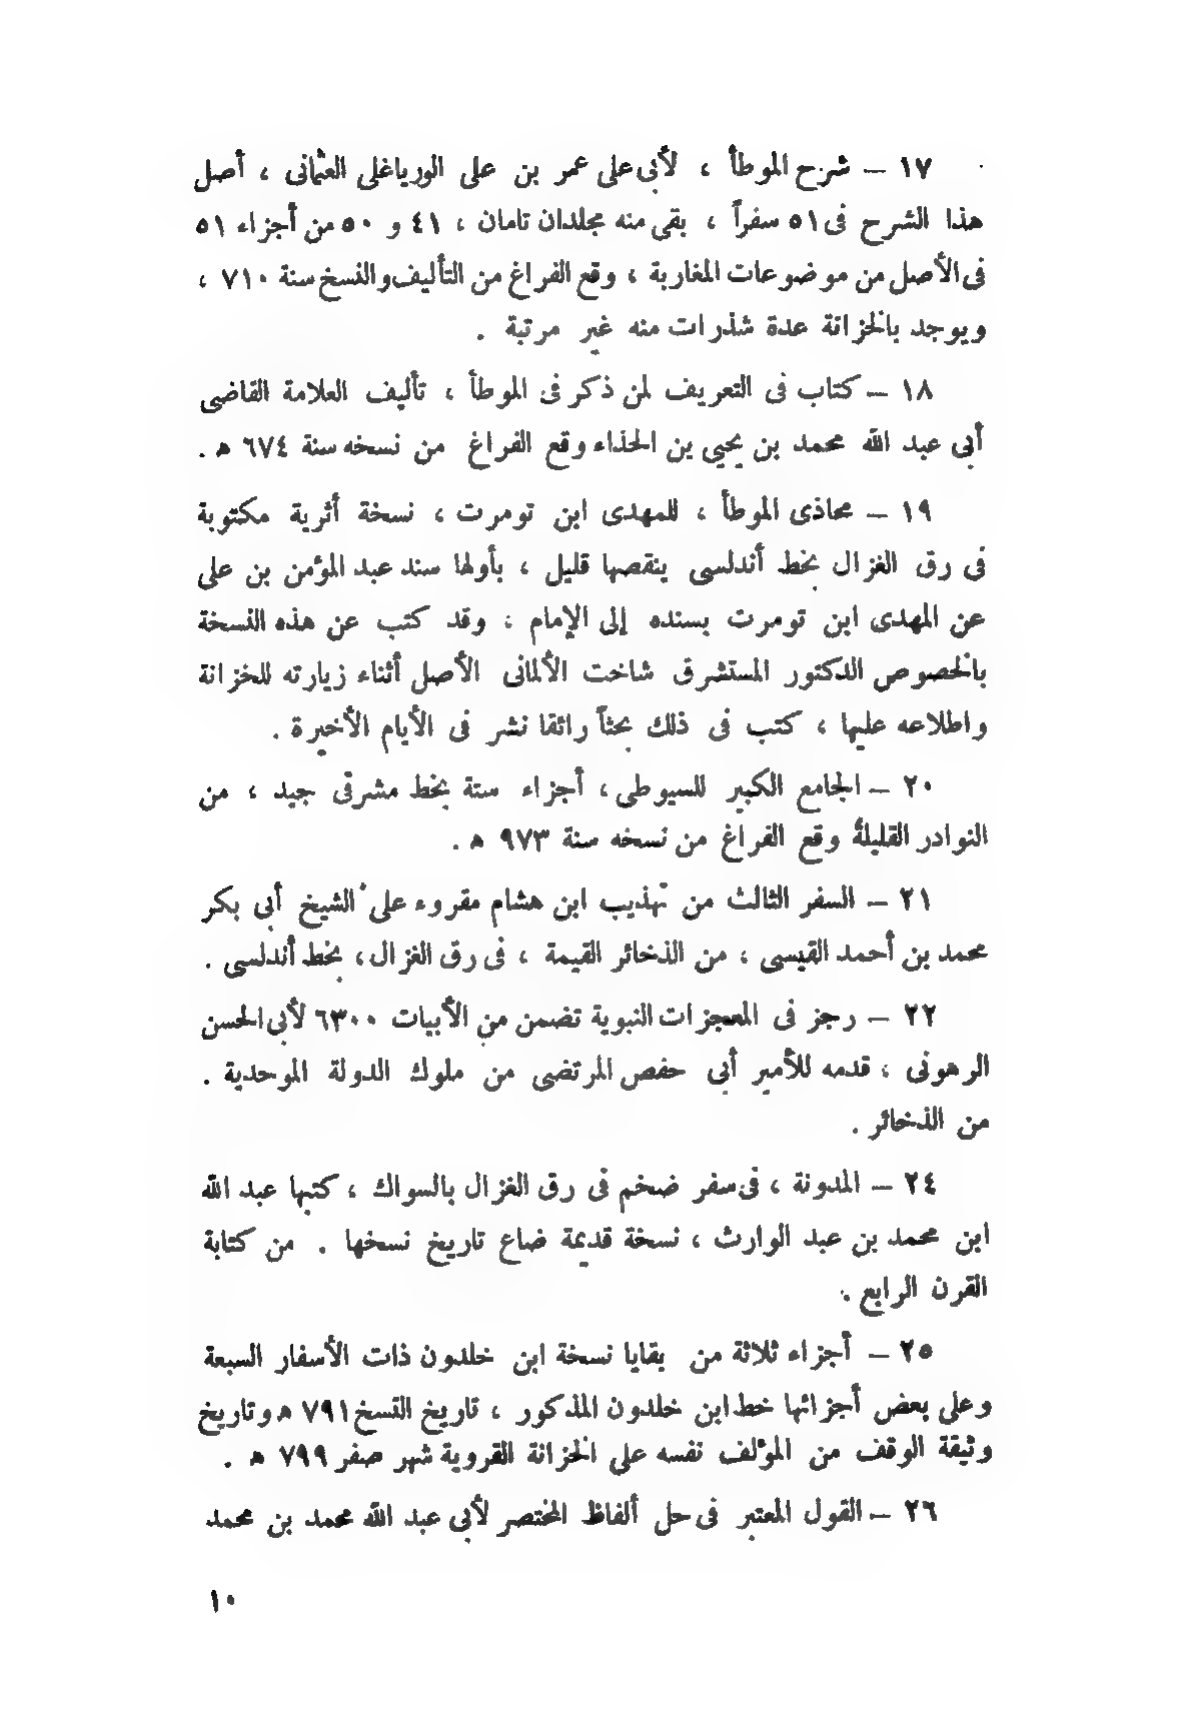 ١٧ — شرح الموطأ ، لأبى على عمر بن على الورياغلى العثمانى ، أصل
هذا الشرح فى ٥١ سفراً ، بقى منه مجلدان تامان ، ٤١ و ٥٠ من أجزاء ٥١
فى الأصل من موضوعات المغاربة ، وقع الفراغ من التأليف والنسخ سنة ٧١٠ ،
ويوجد بالخزانة عدة شذرات منه غير مرتبة .
١٨ — كتاب فى التعريف لمن ذكر فى الموطأ ، تأليف العلامة القاضى
أبى عبد الله محمد بن يحيى بن الحذاء وقع الفراغ من نسخه سنة ٦٧٤ ه .
١٩ — محاذى الموطأ ، للمهدى ابن تومرت ، نسخة أثرية مكتوبة
فى رق الغزال بخط أندلسى ينقصها قليل ، بأولها سند عبد المؤمن بن على
عن المهدى ابن تومرت بسنده إلى الإمام ، وقد كتب عن هذه النسخة
بالخصوص الدكتور المستشرق شاخت الألمانى الأصل أثناء زيارته للخزانة
واطلاعه عليها ، كتب فى ذلك بحثاً رائقا نشر فى الأيام الأخيرة .
٢٠ — الجامع الكبير للسيوطى ، أجزاء ستة بخط مشرقى جيد ، من
النوادر القليلة وقع الفراغ من نسخه سنة ٩٧٣ ه .
٢١ — السفر الثالث من تهذيب ابن هشام مقروء على الشيخ أبى بكر
محمد بن أحمد القيسى ، من الذخائر القيمة ، فى رق الغزال ، بخط أندلسى .
٢٢ — رجز فى المعجزات النبوية تضمن من الأبيات ٦٣٠٠ لأبى الحسن
الرهونى ، قدمه للأمير أبى حفص المرتضى من ملوك الدولة الموحدية .
من الذخائر .
٢٤ — المدونة ، فى سفر ضخم فى رق الغزال بالسواك ، كتبها عبد الله
ابن محمد بن عبد الوارث ، نسخة قديمة ضاع تاريخ نسخها . من كتابة
القرن الرابع .
٢٥ — أجزاء ثلاثة من بقايا نسخة ابن خلدون ذات الأسفار السبعة
وعلى بعض أجزائها خط ابن خلدون المذكور ، تاريخ النسخ ٧٩١ ه وتاريخ
وثيقة الوقف من المؤلف نفسه على الخزانة القروية شهر صفر ٧٩٩ ه .
٢٦ — القول المعتبر فى حل ألفاظ المختصر لأبى عبد الله محمد بن محمد
١٠